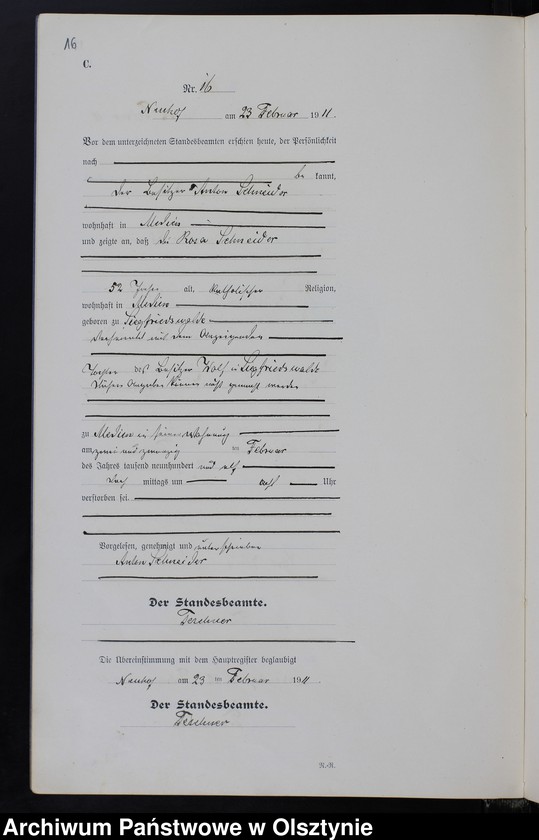 16
C.
Nr. 16
Neuhof am 23 Februar 1911.
Vor dem unterzeichneten Standesbeamten erschien heute, der Persönlichkeit
nach
be kannt,
der Besitzer Anton Schneider
wohnhaft in Medien
und zeigte an, daß die Rosa Schneider
52 Jahre alt, katholischer Religion,
wohnhaft in Medien
geboren zu Siegfriedswalde
verheiratet mit dem Anzeigenden
Tochter des Besitzer Wolf in Siegfriedswalde
Nähere Angaben können nicht gemacht werden
zu Medien in seiner Wohnung
am zwei und zwanzig ten Februar
des Jahres tausend neunhundert und elf
mittags um acht Uhr
verstorben sei.
Vorgelesen, genehmigt und unterschrieben
Anton Schneider
Der Standesbeamte.
Teschner
Die Übereinstimmung mit dem Hauptregister beglaubigt
Neuhof am 23 ten Februar 1911.
Der Standesbeamte.
Teschner
R.-R.
Archiwum Państwowe w Olsztynie